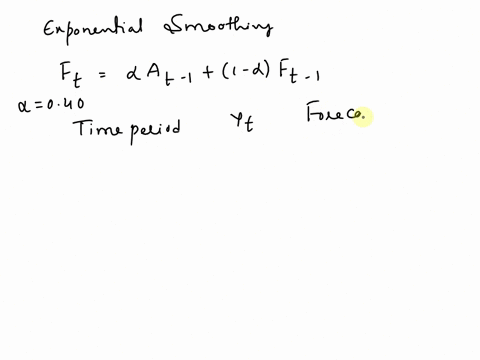 Exponential Smoothing
F_t = α A_{t-1} + (1-α) F_{t-1}
α = 0.40
Time period Y_t Forec